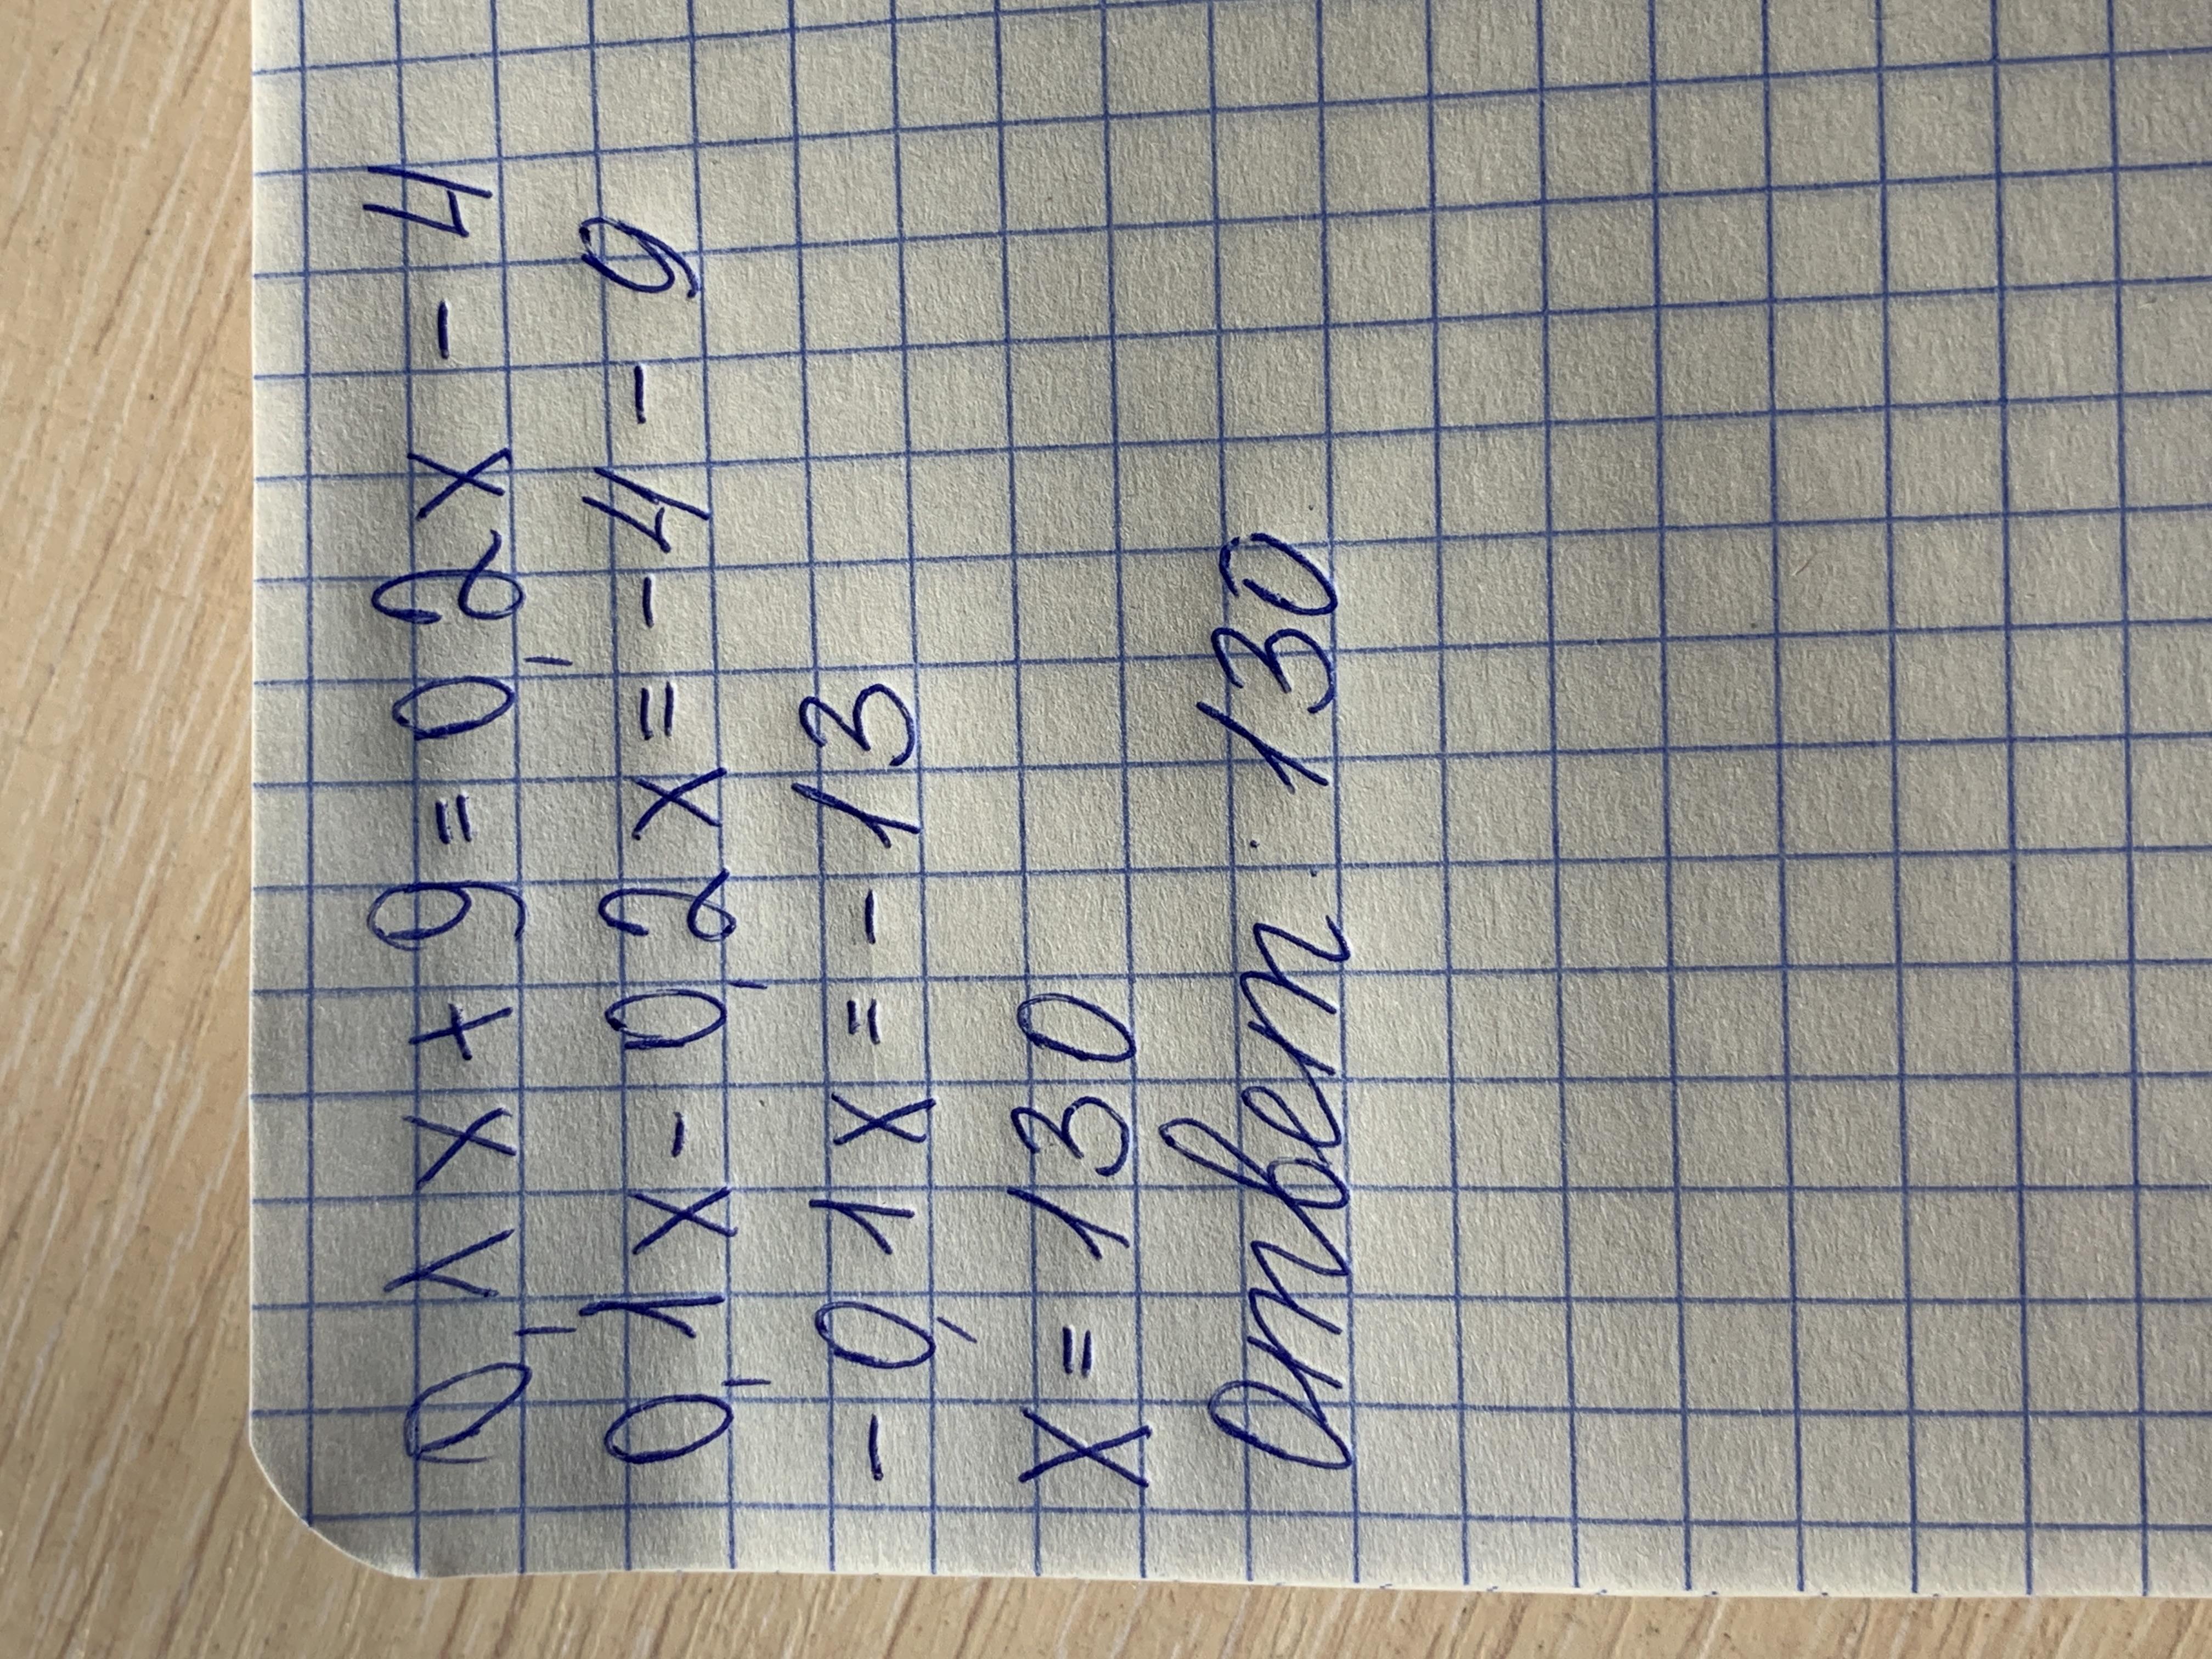 0,1x + 9 = 0,2x - 4
0,1x - 0,2x = -4 - 9
-0,1x = -13
x = 130
Ответ: 130